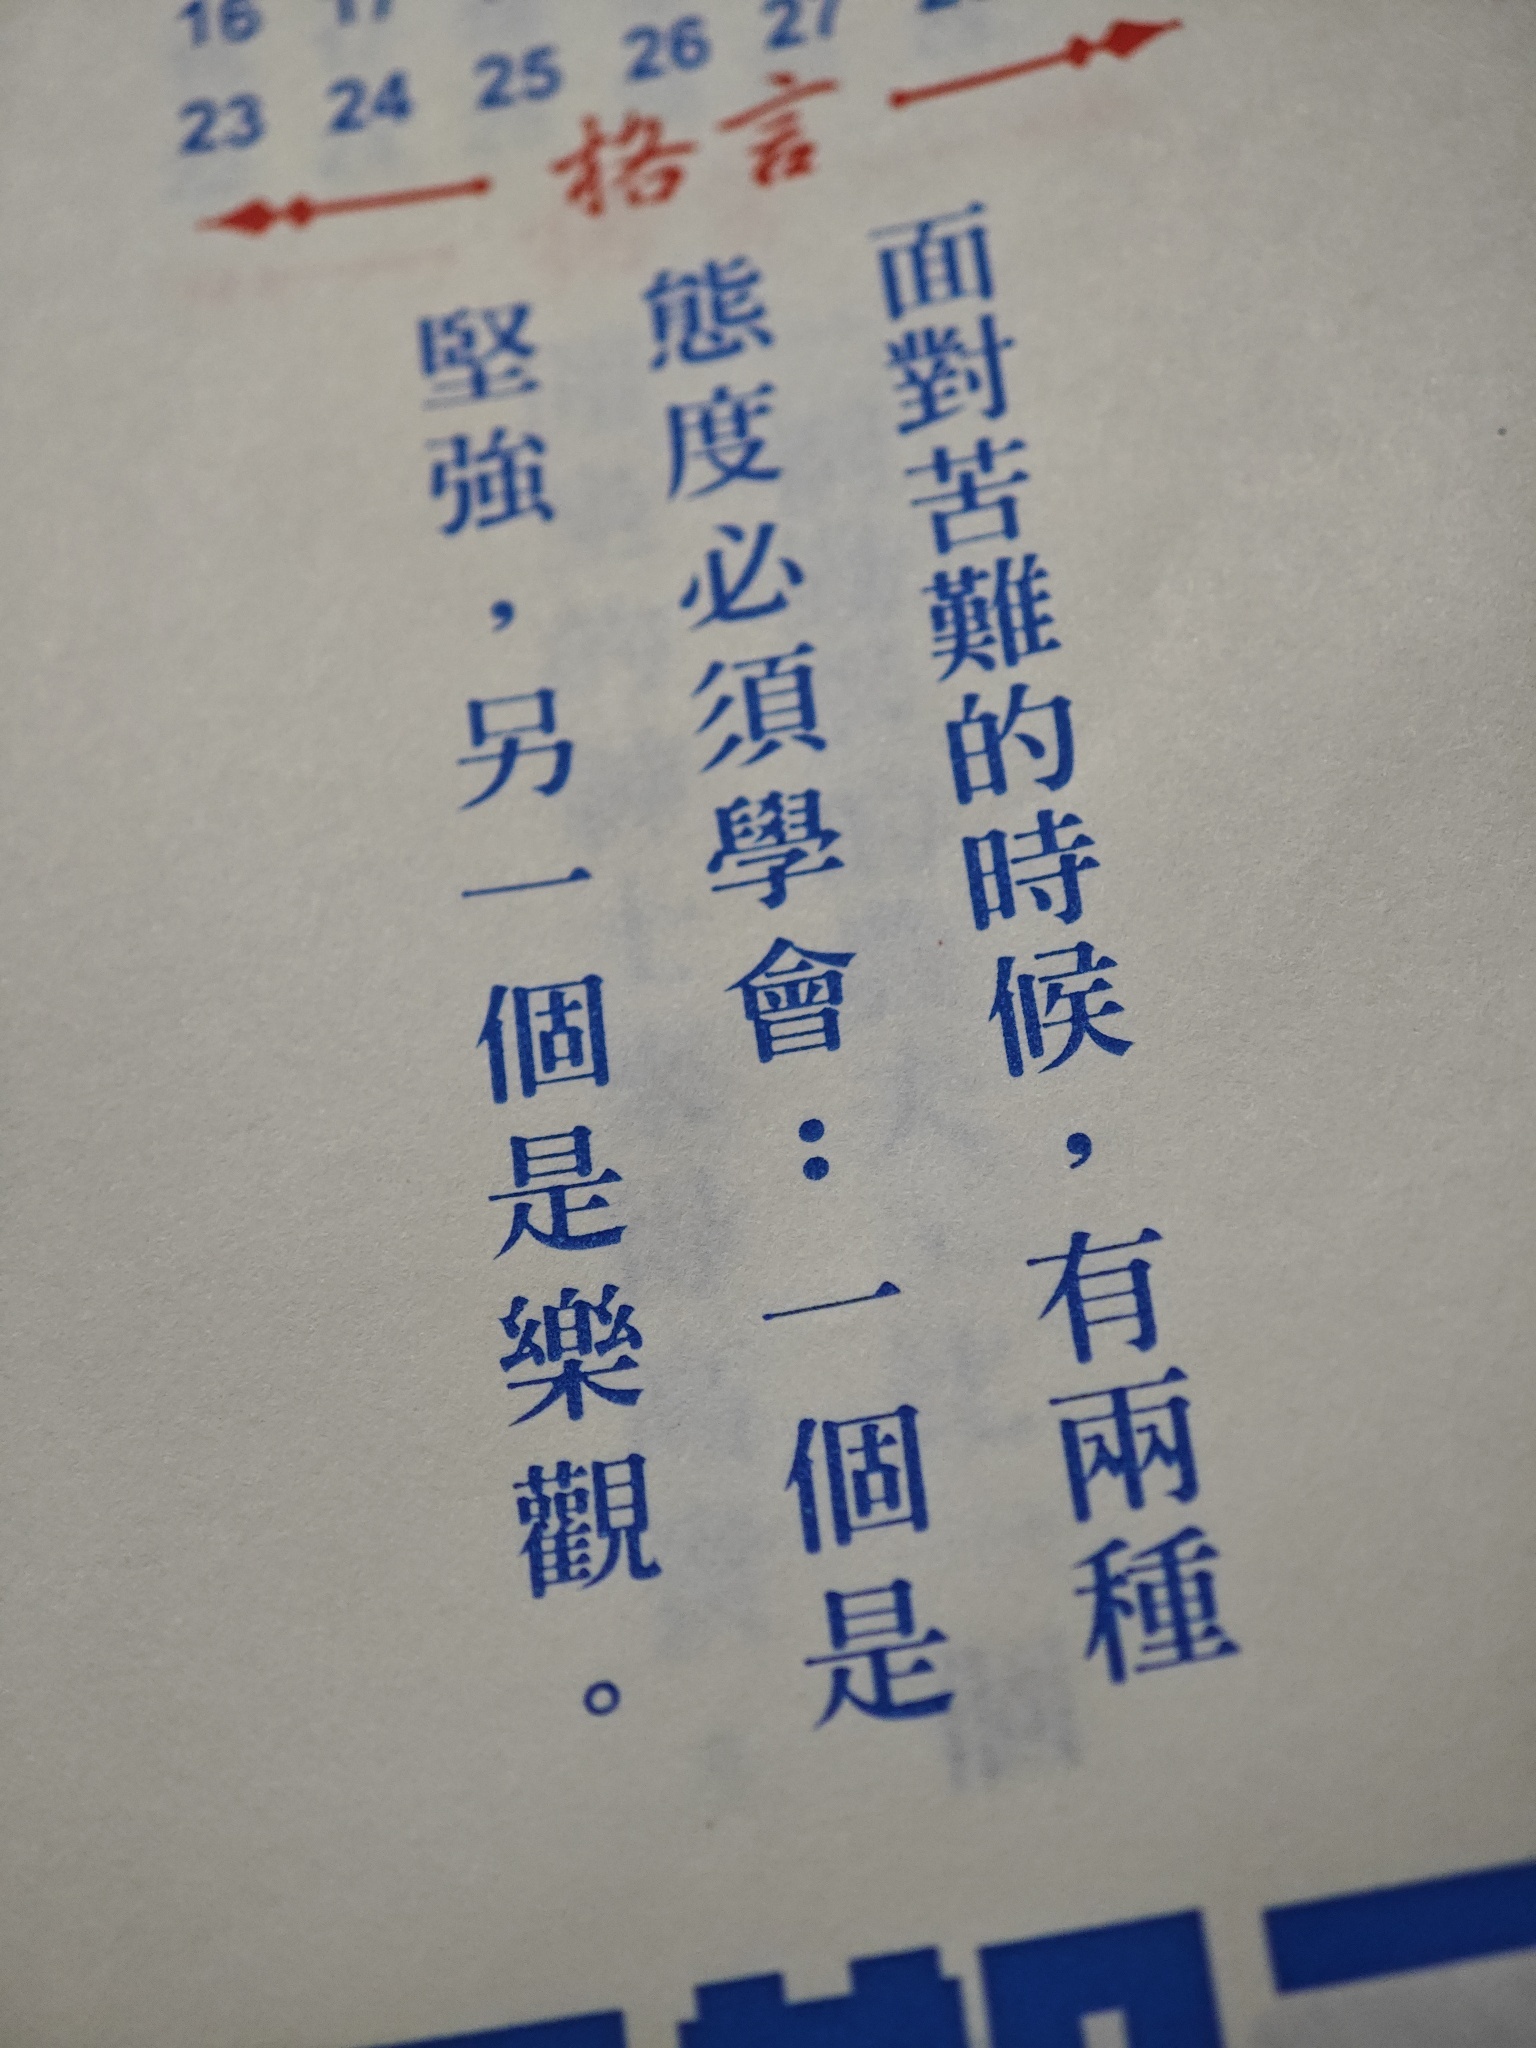 16 17
23 24 25 26 27
格言
面對苦難的時候，有兩種
態度必須學會：一個是
堅強，另一個是樂觀。
期